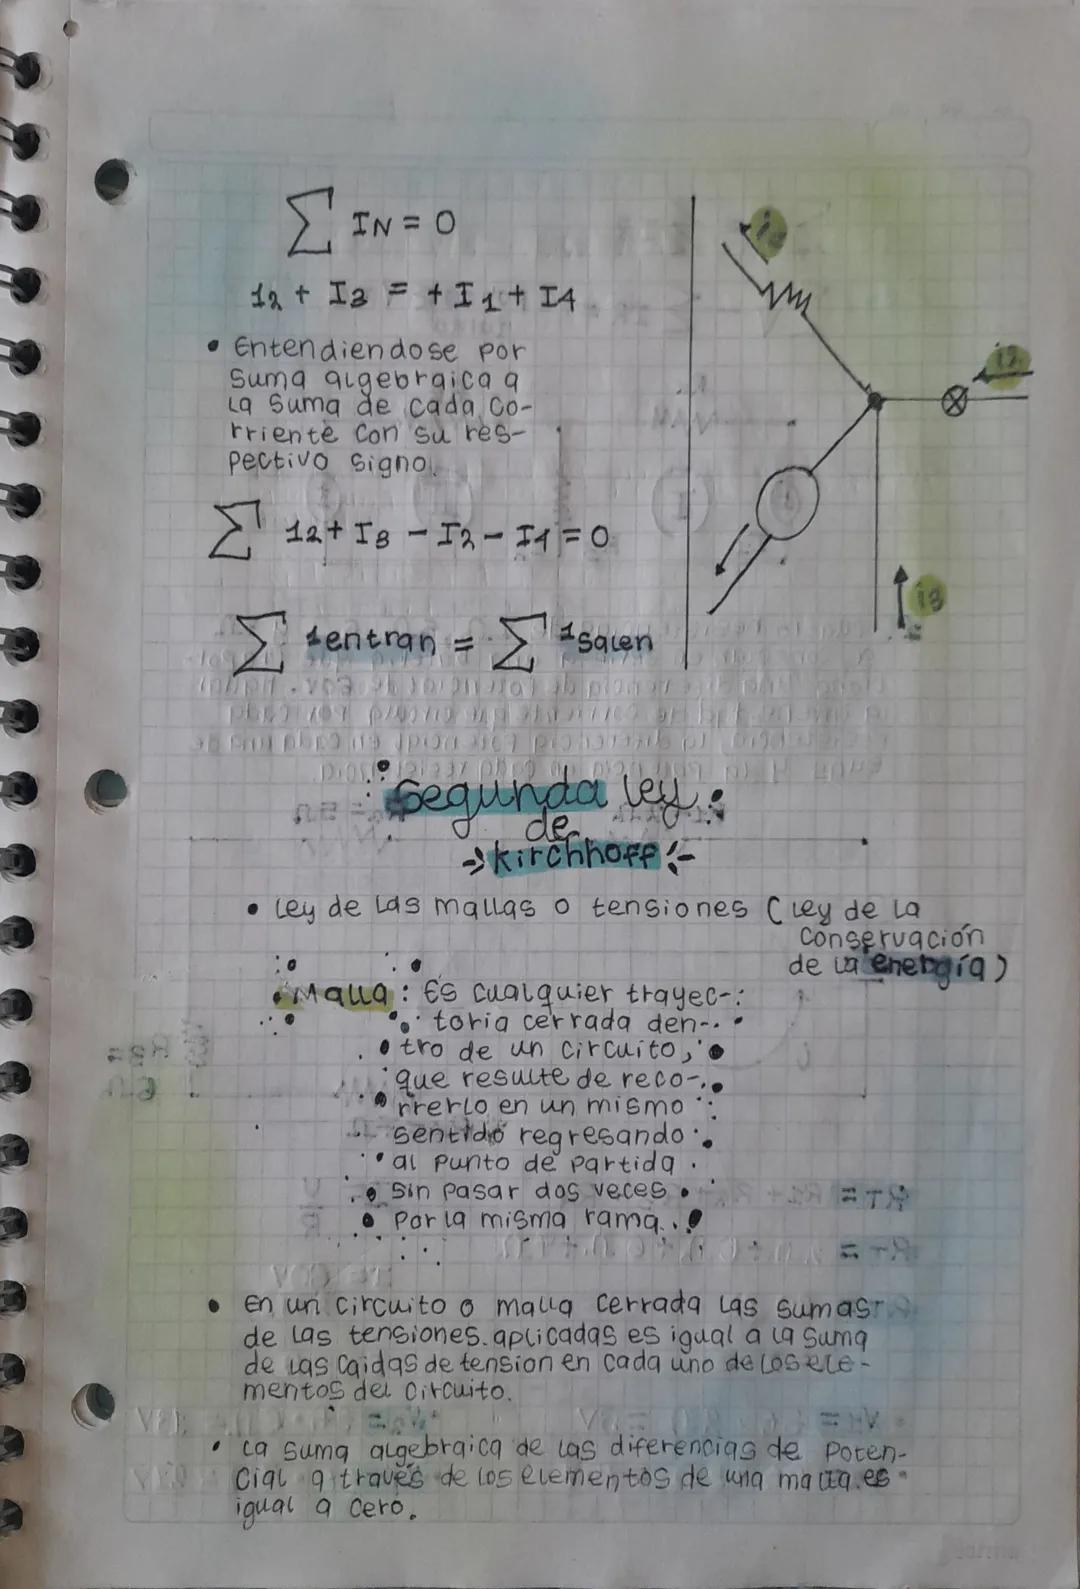 ∑ IN = 0
I2 + I3 = + I1 + I4
• Entendiendose por
suma algebraica a
la suma de cada co-
rriente con su res-
pectivo signo.
∑ I2 + I3 - I2 - I4 = 0
∑ Ientran = ∑ Isalen
i2
i3
Segunda ley
de
kirchhoff
• Ley de las mallas o tensiones (Ley de la
conservación
de la energía)
Malla: Es cualquier trayec-
toria cerrada den-
tro de un circuito,
que resulte de reco-
rrerlo en un mismo
sentido regresando
al punto de partida
sin pasar dos veces
por la misma rama.
• En un circuito o malla cerrada las sumas
de las tensiones aplicadas es igual a la suma
de las caidas de tension en cada uno de los ele-
mentos del circuito.
• La suma algebraica de las diferencias de poten-
cial a través de los elementos de una malla es
igual a cero.